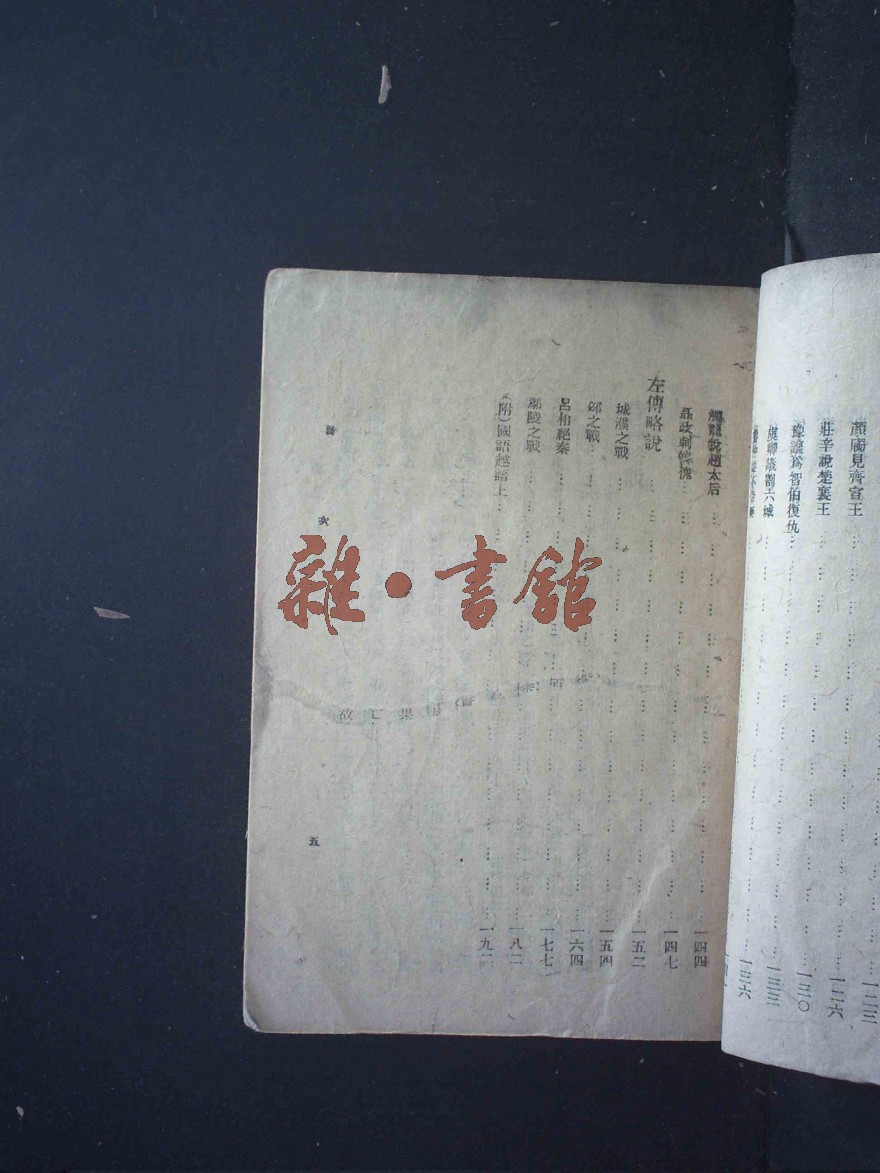 顏斶見齊宣王 一二三
莊辛說楚襄王 一二六
豫讓爲智伯復仇 一三〇
虞卿議割六城 一三三
一三六
觸讋說趙太后 一四四
聶政刺韓傀 一四七
左傳略說 一五二
城濮之戰 一五四
邲之戰 一六四
呂相絕秦 一七七
鄢陵之戰 一八二
(附)國語越語上 一九二
次
五
雜·書館